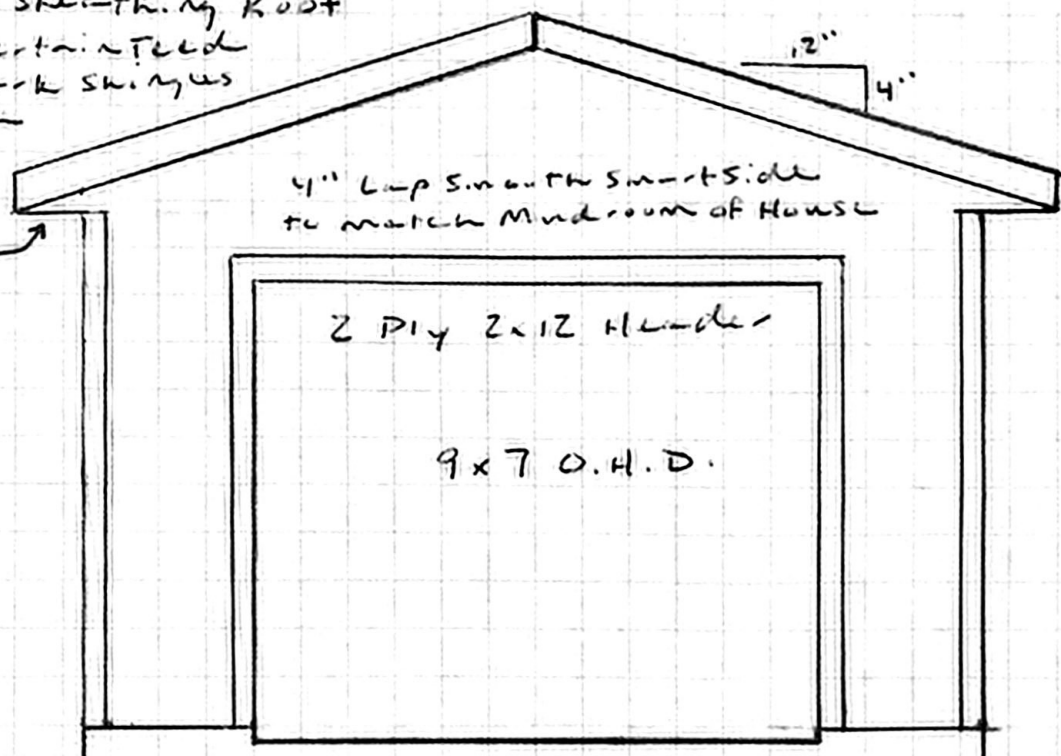 Sheathing Roof
rtainTeed
rk Shingles
12"
4"
4" Lap Smooth Smart Side
to match Mudroom of House
2 Ply 2x12 Header
9x7 O.H.D.